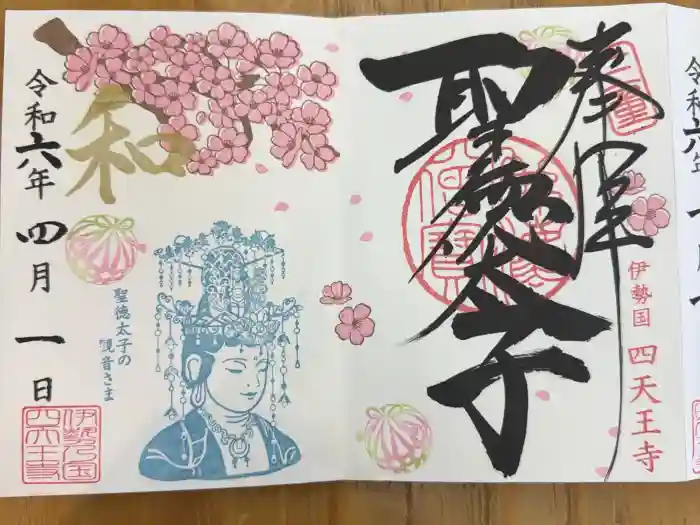 奉拝
聖徳太子
伊勢国 四天王寺
和
令和六年 四月 一日
聖徳太子の
観音さま
伊勢国
四天王寺